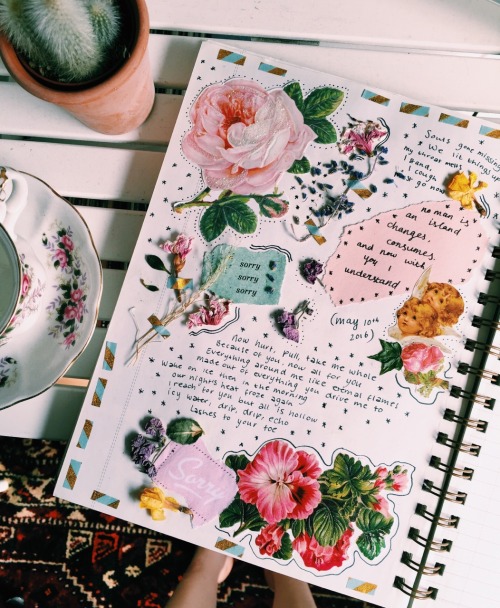 Souls gone missing
We lit things up
my throat meat
Dana,
I cough
go now
no man is
an island
changes,
consumes.
and now with
you I
understand
sorry
sorry
sorry
(may 10th
2016)
Now hurt, pull, take me whole
Because of you, now all for you
Everything around me like eternal flames
made out of everything you drive me to
Wake on ice then in the morning
our nights heat froze again
I reach for you but all is hollow
Icy water, drip, drip, echo
Lashes to your toe
Sorry